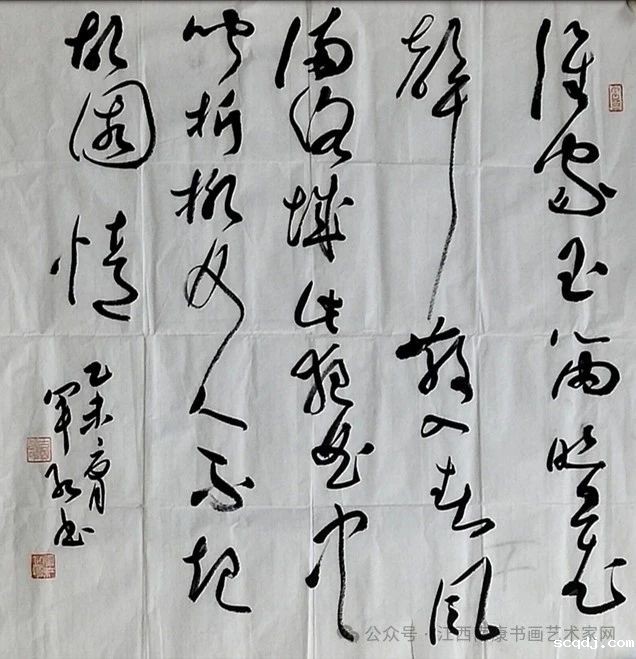 誰家玉笛暗飛
聲散入春風
滿洛城此夜曲中
聞折柳何人不起
故園情
乙未 月
軍 书
公众号·江西 康书画艺术家网
scqdj.com